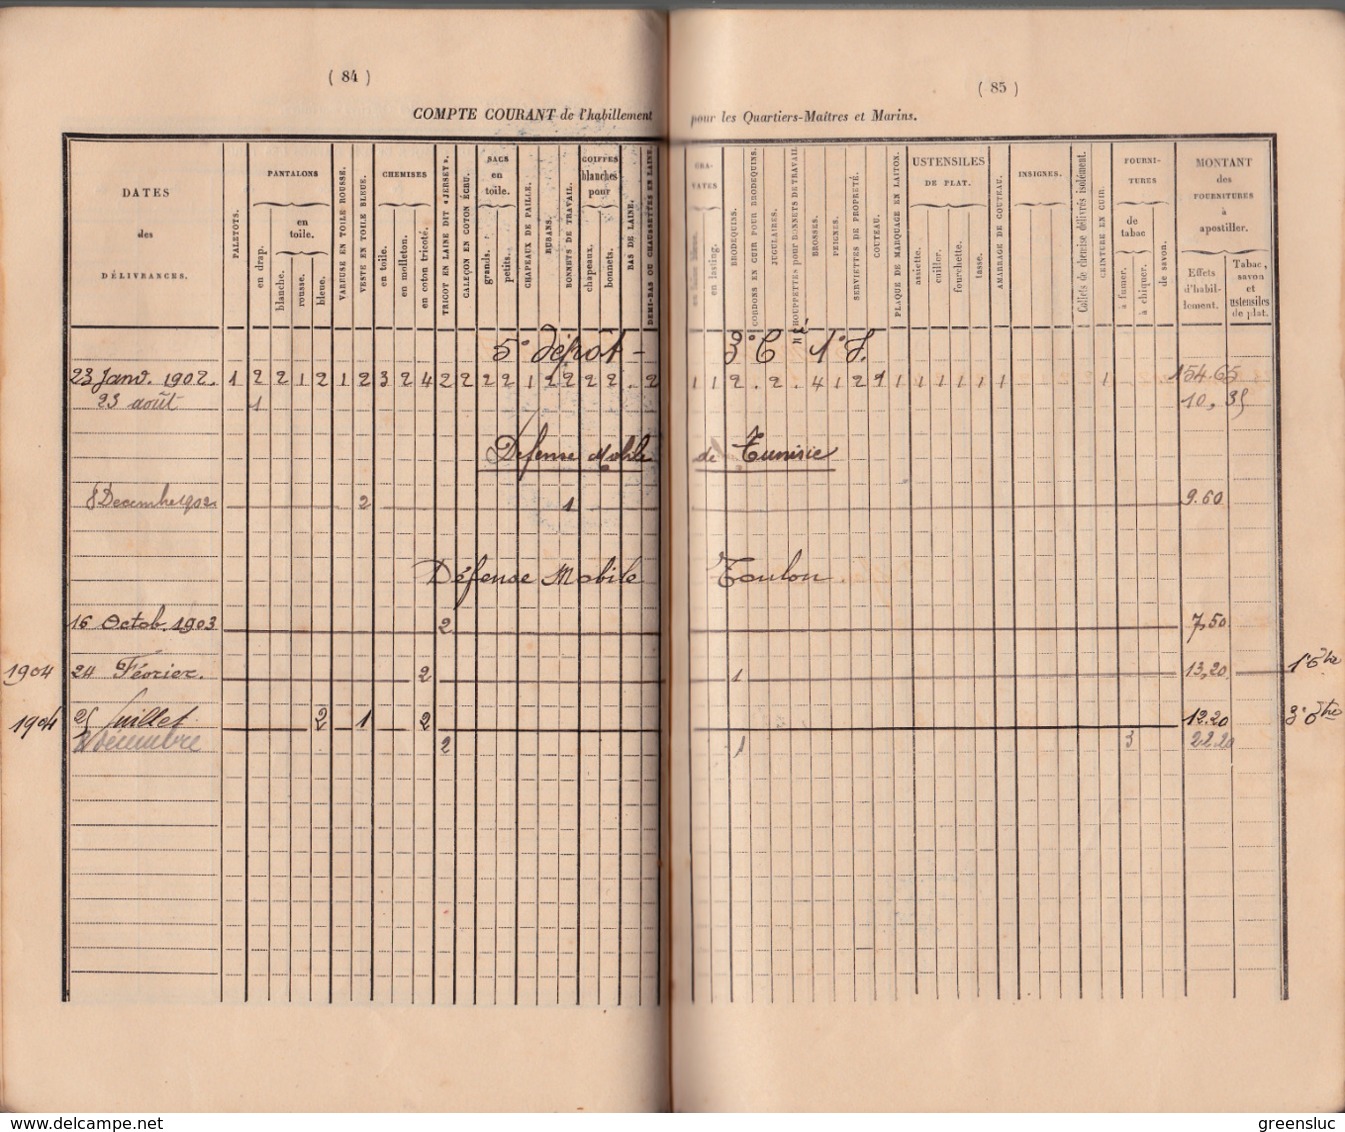 ( 84 )
COMPTE COURANT de l'habillement
DATES
des
DÉLIVRANCES.
PALETOTS.
PANTALONS
en drap.
en
toile.
blanche.
rousse.
bleue.
VAREUSE EN TOILE ROUSSE.
VESTE EN TOILE BLEUE.
CHEMISES
en toile.
en molleton.
en coton tricoté.
TRICOT EN LAINE DIT «JERSEY».
CALEÇON EN COTON ÉCRU.
SACS
en
toile.
grands.
petits.
CHAPEAUX DE PAILLE.
RUBANS.
BONNETS DE TRAVAIL.
COIFFES
blanches
pour
chapeaux.
bonnets.
BAS DE LAINE.
DEMI-BAS OU CHAUSSETTES EN LAINE.
5e dépôt -
23 Janv. 1902. 1 2 2 1 2 1 2 3 2 4 2 2 2 2 1 2 2 2 2 . 2
23 août 1
Défense Mobile
8 Decembre 1902 2 1
Défense Mobile
16 Octob. 1903 2
1904 24 Février. 2
1904 25 Juillet 2 1 2
Décembre 2
( 85 )
pour les Quartiers-Maîtres et Marins.
CRA-
VATES
en lasting.
BRODEQUINS.
CORDONS EN CUIR POUR BRODEQUINS.
JUGULAIRES.
HOUPPETTES pour BONNETS DE TRAVAIL
BROSSES.
PEIGNES.
SERVIETTES DE PROPRETÉ.
COUTEAU.
PLAQUE DE MARQUAGE EN LAITON.
USTENSILES
DE PLAT.
assiette.
cuiller.
fourchette.
tasse.
AMARRAGE DE COUTEAU.
INSIGNES.
Collets de chemise délivrés isolément.
CEINTURE EN CUIR.
FOURNI-
TURES
de
tabac
à fumer.
à chiquer.
de savon.
MONTANT
des
FOURNITURES
à
apostiller.
Effets
d'habil-
lement.
Tabac,
savon
et
ustensiles
de plat.
3e C 1e S.
1 1 2 . 2 . 4 1 2 1 1 1 1 1 1 1 1 154.65
10,35
de Tunisie
9.60
Toulon
7,50
1 13,20 1e Bre
12.20
1 3 22.20
greensluc